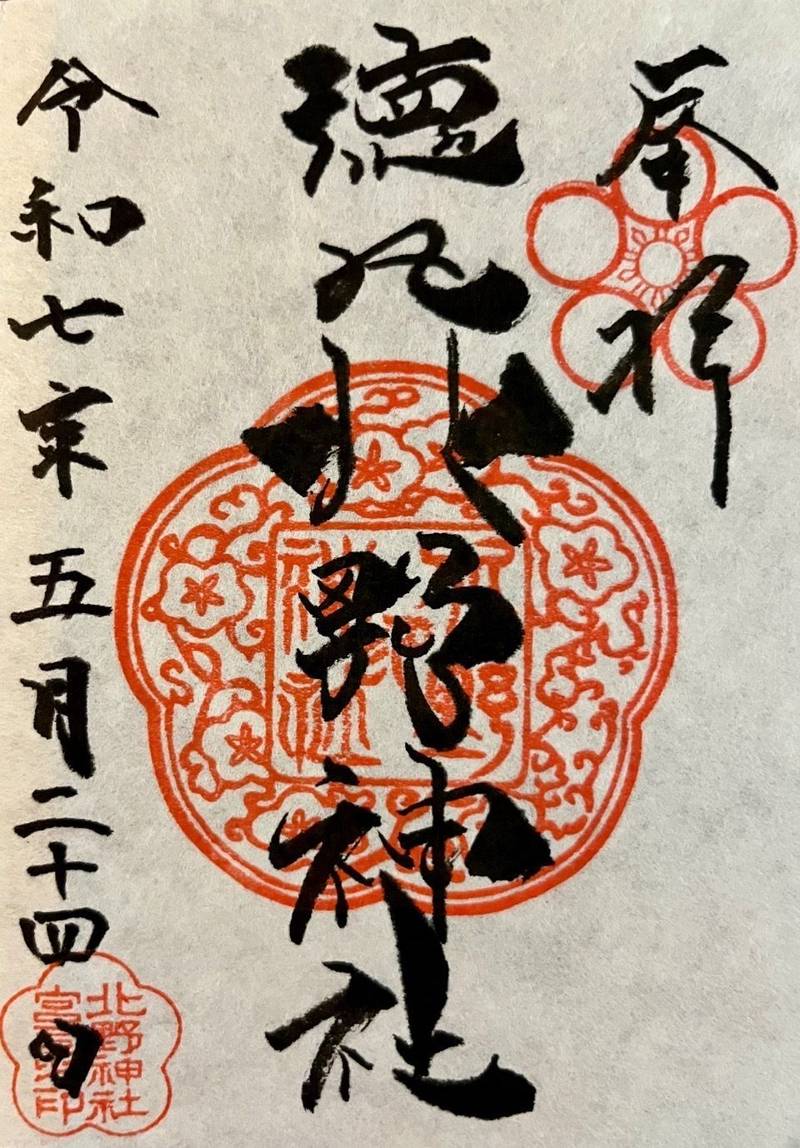 奉拝
徳丸北野神社
北野
神社
令和七年五月二十四日
北野神社
宮司之印